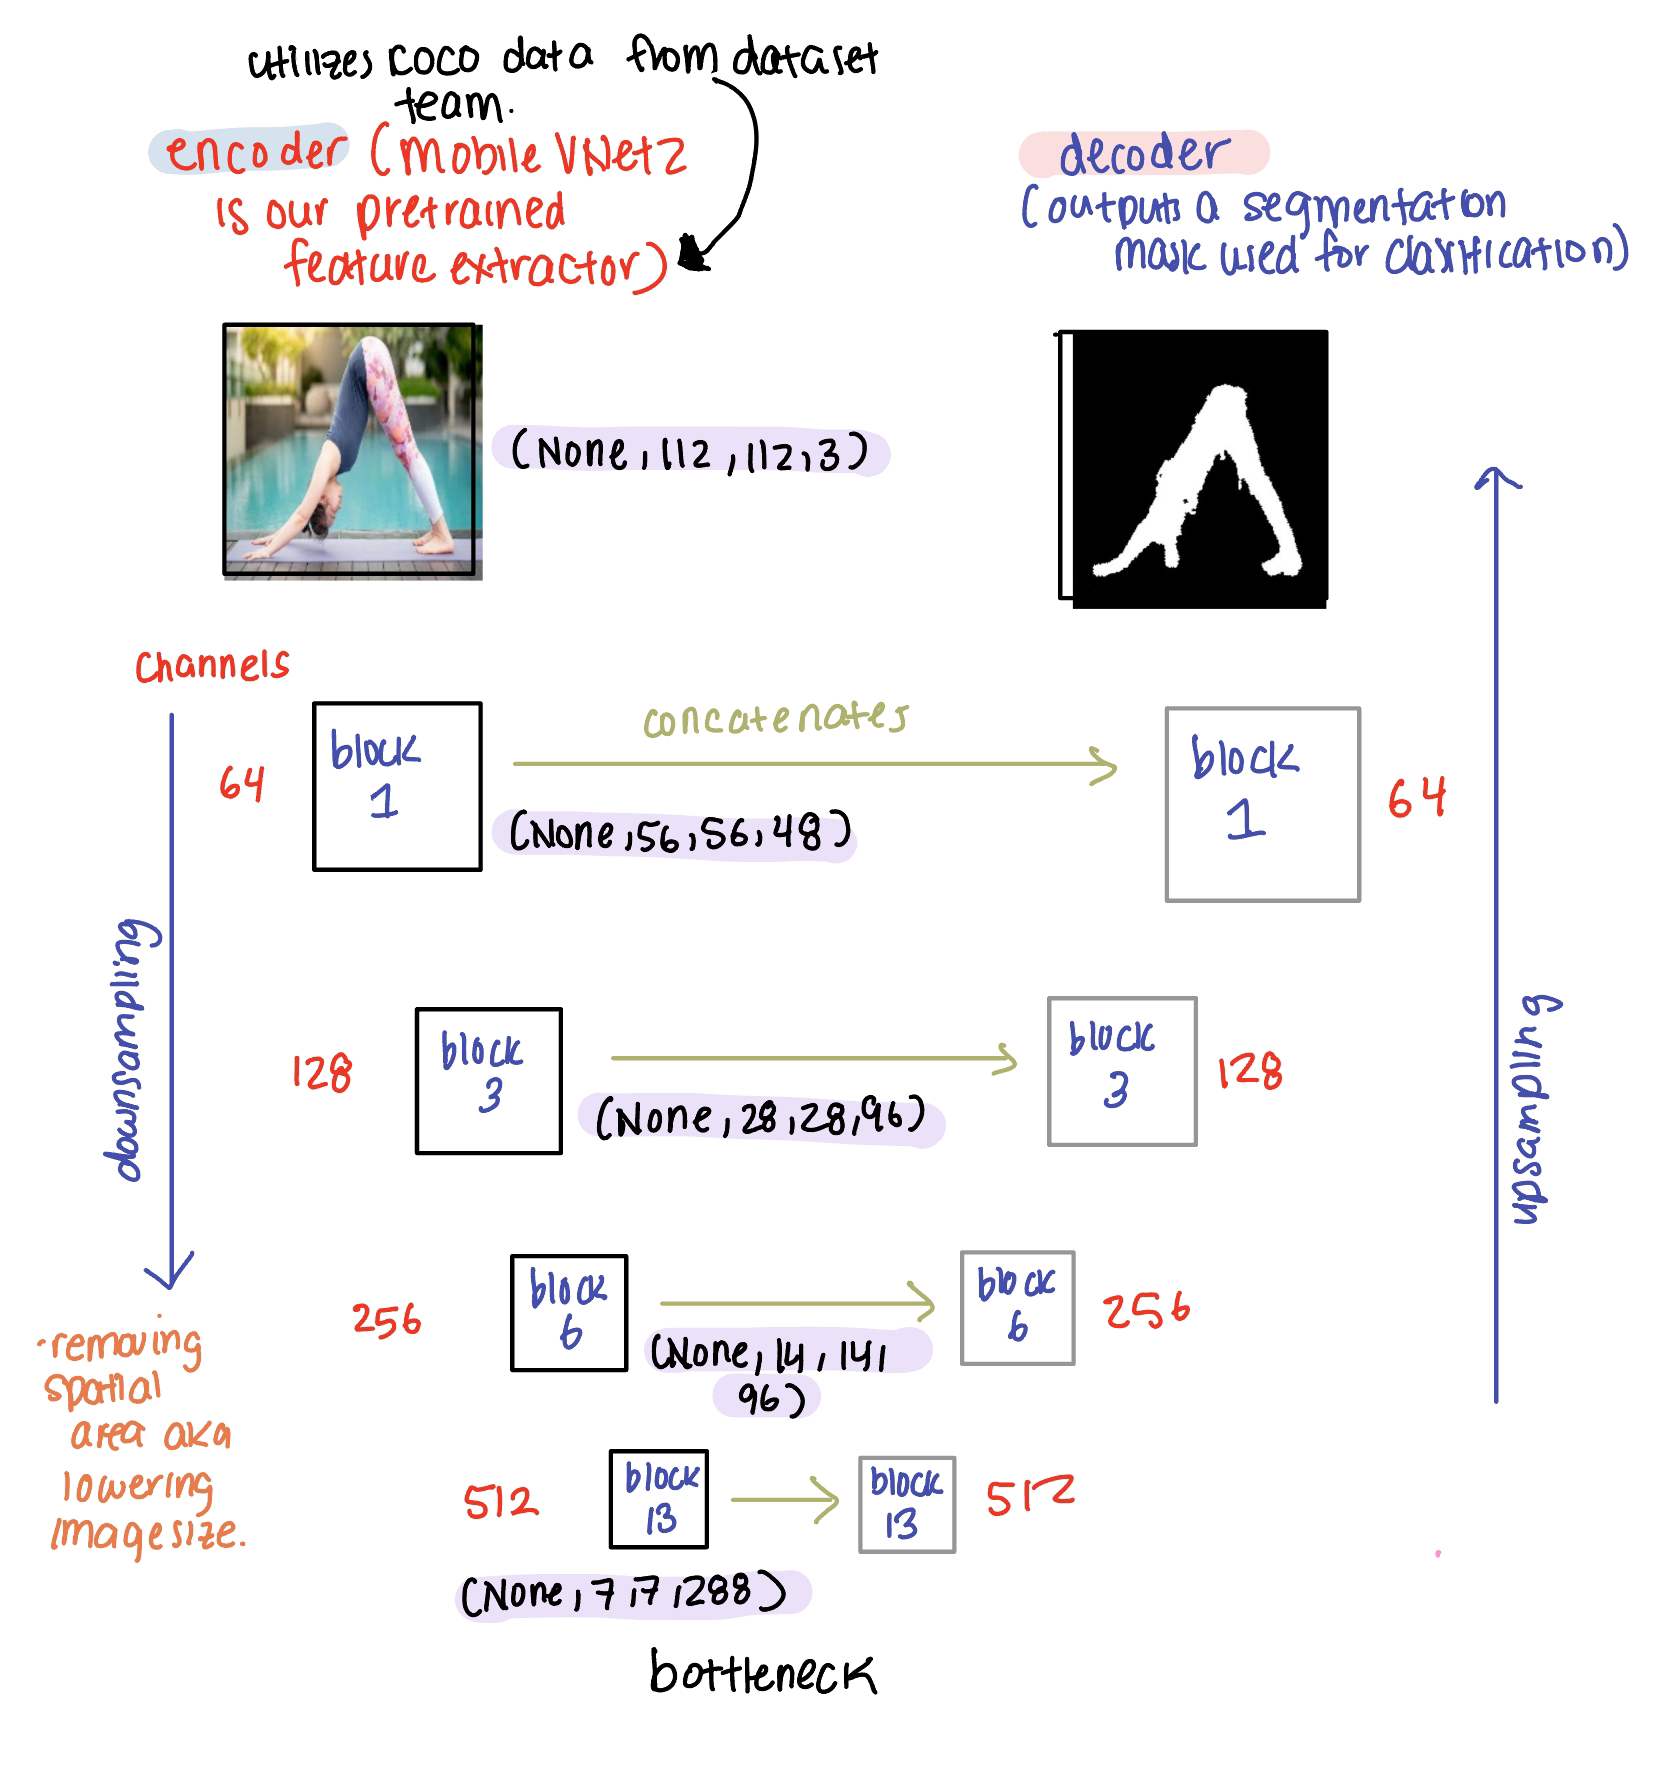 utilizes coco data from dataset
team.
encoder (Mobile VNet2
is our pretrained
feature extractor)
decoder
(outputs a segmentation
mask used for classification)
(None, 112, 112, 3)
channels
64
block
1
concatenates
(None, 56, 56, 48)
block
1
64
downsampling
128
block
3
(None, 28, 28, 96)
block
3
128
upsampling
256
block
6
(None, 14, 14,
96)
block
6
256
-removing
spatial
area aka
lowering
image size.
512
block
13
block
13
512
(None, 7, 7, 288)
bottleneck